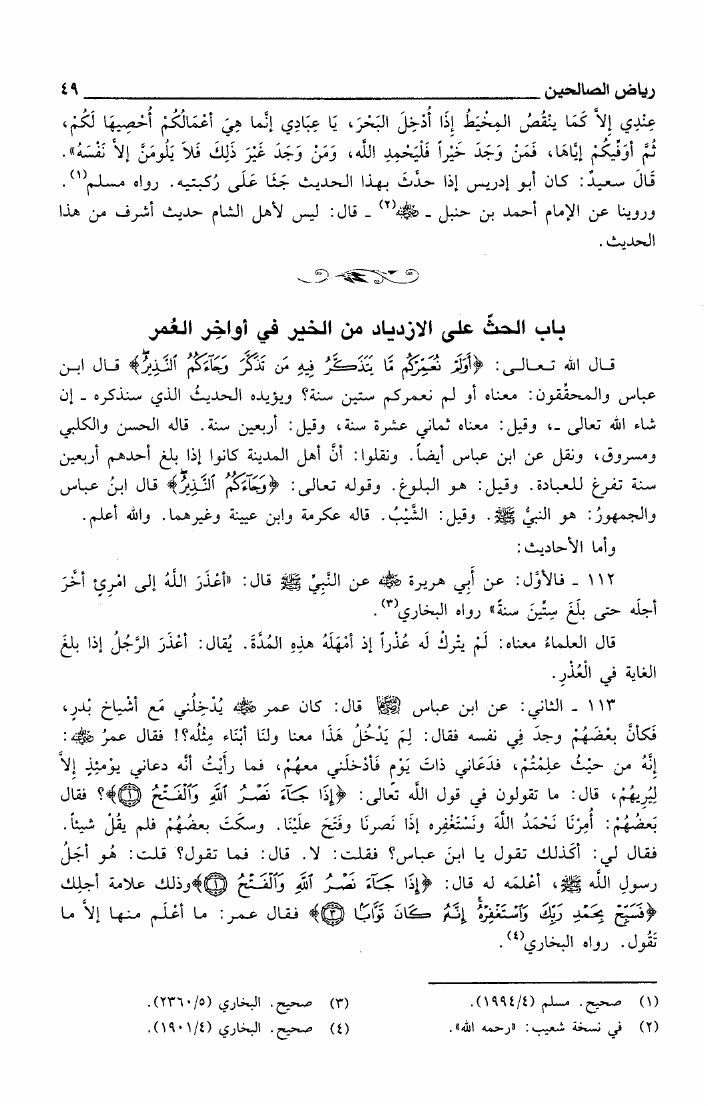 رياض الصالحين ٤٩
عِنْدِي إلاَّ كَمَا يَنْقُصُ المِخْيَطُ إذَا أُدْخِلَ البَحْرَ، يَا عِبَادِي إنَّما هِيَ أعْمَالُكُمْ أُحْصِيهَا لَكُمْ،
ثُمَّ أوَفِّيكُمْ إيَّاهَا، فَمَنْ وَجَدَ خَيْراً فَلْيَحْمِدِ اللَّه، وَمَنْ وَجَدَ غَيْرَ ذَلِكَ فَلاَ يَلُومَنَّ إلاَّ نَفْسَهُ».
قَالَ سعيدٌ: كان أبو إدريس إذا حدَّثَ بهذا الحديث جَثَا عَلَى رُكبتيه. رواه مسلم(١).
وروينا عن الإمام أحمد بن حنبل ـ ﵁(٢) ـ قال: ليس لأهل الشام حديث أشرف من هذا
الحديث.
باب الحثّ على الازدياد من الخير في أواخِر العُمر
قال الله تعالى: ﴿أَوَلَمْ نُعَمِّرْكُم مَّا يَتَذَكَّرُ فِيهِ مَن تَذَكَّرَ وَجَآءَكُمُ ٱلنَّذِيرُ﴾ قال ابن
عباس والمحقِّقون: معناه أو لم نعمركم ستين سنة؟ ويؤيده الحديثُ الذي سنذكره ـ إن
شاء الله تعالى ـ، وقيل: معناه ثماني عشرة سنة، وقيل: أربعين سنة. قاله الحسن والكلبي
ومسروق، ونقل عن ابن عباس أيضاً. ونقلوا: أنَّ أهل المدينة كانوا إذا بلغ أحدهم أربعين
سنة تفرغ للعبادة. وقيل: هو البلوغ. وقوله تعالى: ﴿وَجَآءَكُمُ ٱلنَّذِيرُ﴾ قال ابنُ عباس
والجمهورُ: هو النبيُّ ﷺ. وقيل: الشَّيْبُ. قاله عكرمة وابن عيينة وغيرهما. والله أعلم.
وأما الأحاديث:
١١٢ ـ فالأوَّل: عن أَبي هريرة ﵁ عن النَّبِيِّ ﷺ قال: «أعْذَرَ اللَّهُ إلى امْرِئٍ أخَّرَ
أجلَه حتى بلَغَ سِتِّينَ سنةً» رواه البخاري(٣).
قال العلماءُ معناه: لَمْ يتركْ لَه عُذْراً إذ أمْهَلَهُ هذِهِ المُدَّةَ. يُقال: أعْذَرَ الرَّجُلُ إذا بلغَ
الغاية في الْعُذْرِ.
١١٣ ـ الثاني: عن ابن عباس ﵄ قال: كان عمر ﵁ يُدْخِلُني مَع أشْياخ بْدرٍ،
فَكأنَّ بعْضَهُمْ وجدَ فِي نفسه فقال: لِمَ يَدْخُلُ هَذَا معنا ولنَا أبْنَاء مِثْلُه؟! فقال عمرُ ﵁:
إنَّهُ من حيْثُ علِمْتُمْ، فدَعَاني ذاتَ يَوْم فَأدْخلَني معهُمْ، فما رأيْتُ أنَّه دعاني يوْمئِذٍ إلاَّ
لِيُرِيهُمْ، قال: ما تقولون في قول اللَّه تعَالى: ﴿إِذَا جَآءَ نَصْرُ ٱللَّهِ وَٱلْفَتْحُ ١﴾؟ فقال
بَعضُهُمْ: أُمِرْنَا نَحْمَدُ اللَّهَ ونَسْتَغْفِره إذَا نَصرنَا وفَتَحَ علَيْنَا. وسكَتَ بعضُهُمْ فلم يقُلْ شيئاً.
فقال لي: أكَذلك تقول يا ابنَ عباس؟ فقلت: لا. قال: فما تقول؟ قلت: هُو أجَلُ
رسولِ اللَّه ﷺ، أعْلمَه له قال: ﴿إِذَا جَآءَ نَصْرُ ٱللَّهِ وَٱلْفَتْحُ ١﴾وذلك علامة أجلِك
﴿فَسَبِّحْ بِحَمْدِ رَبِّكَ وَٱسْتَغْفِرْهُ إِنَّهُۥ كَانَ تَوَّابًۢا ٣﴾ فقال عمر: ما أعْلَم منها إلاَّ ما
تَقُول. رواه البخاري(٤).
(١) صحيح. مسلم (١٩٩٤/٤).
(٢) في نسخة شعيب: «رحمه الله».
(٣) صحيح. البخاري (٢٣٦٠/٥).
(٤) صحيح. البخاري (١٩٠١/٤).